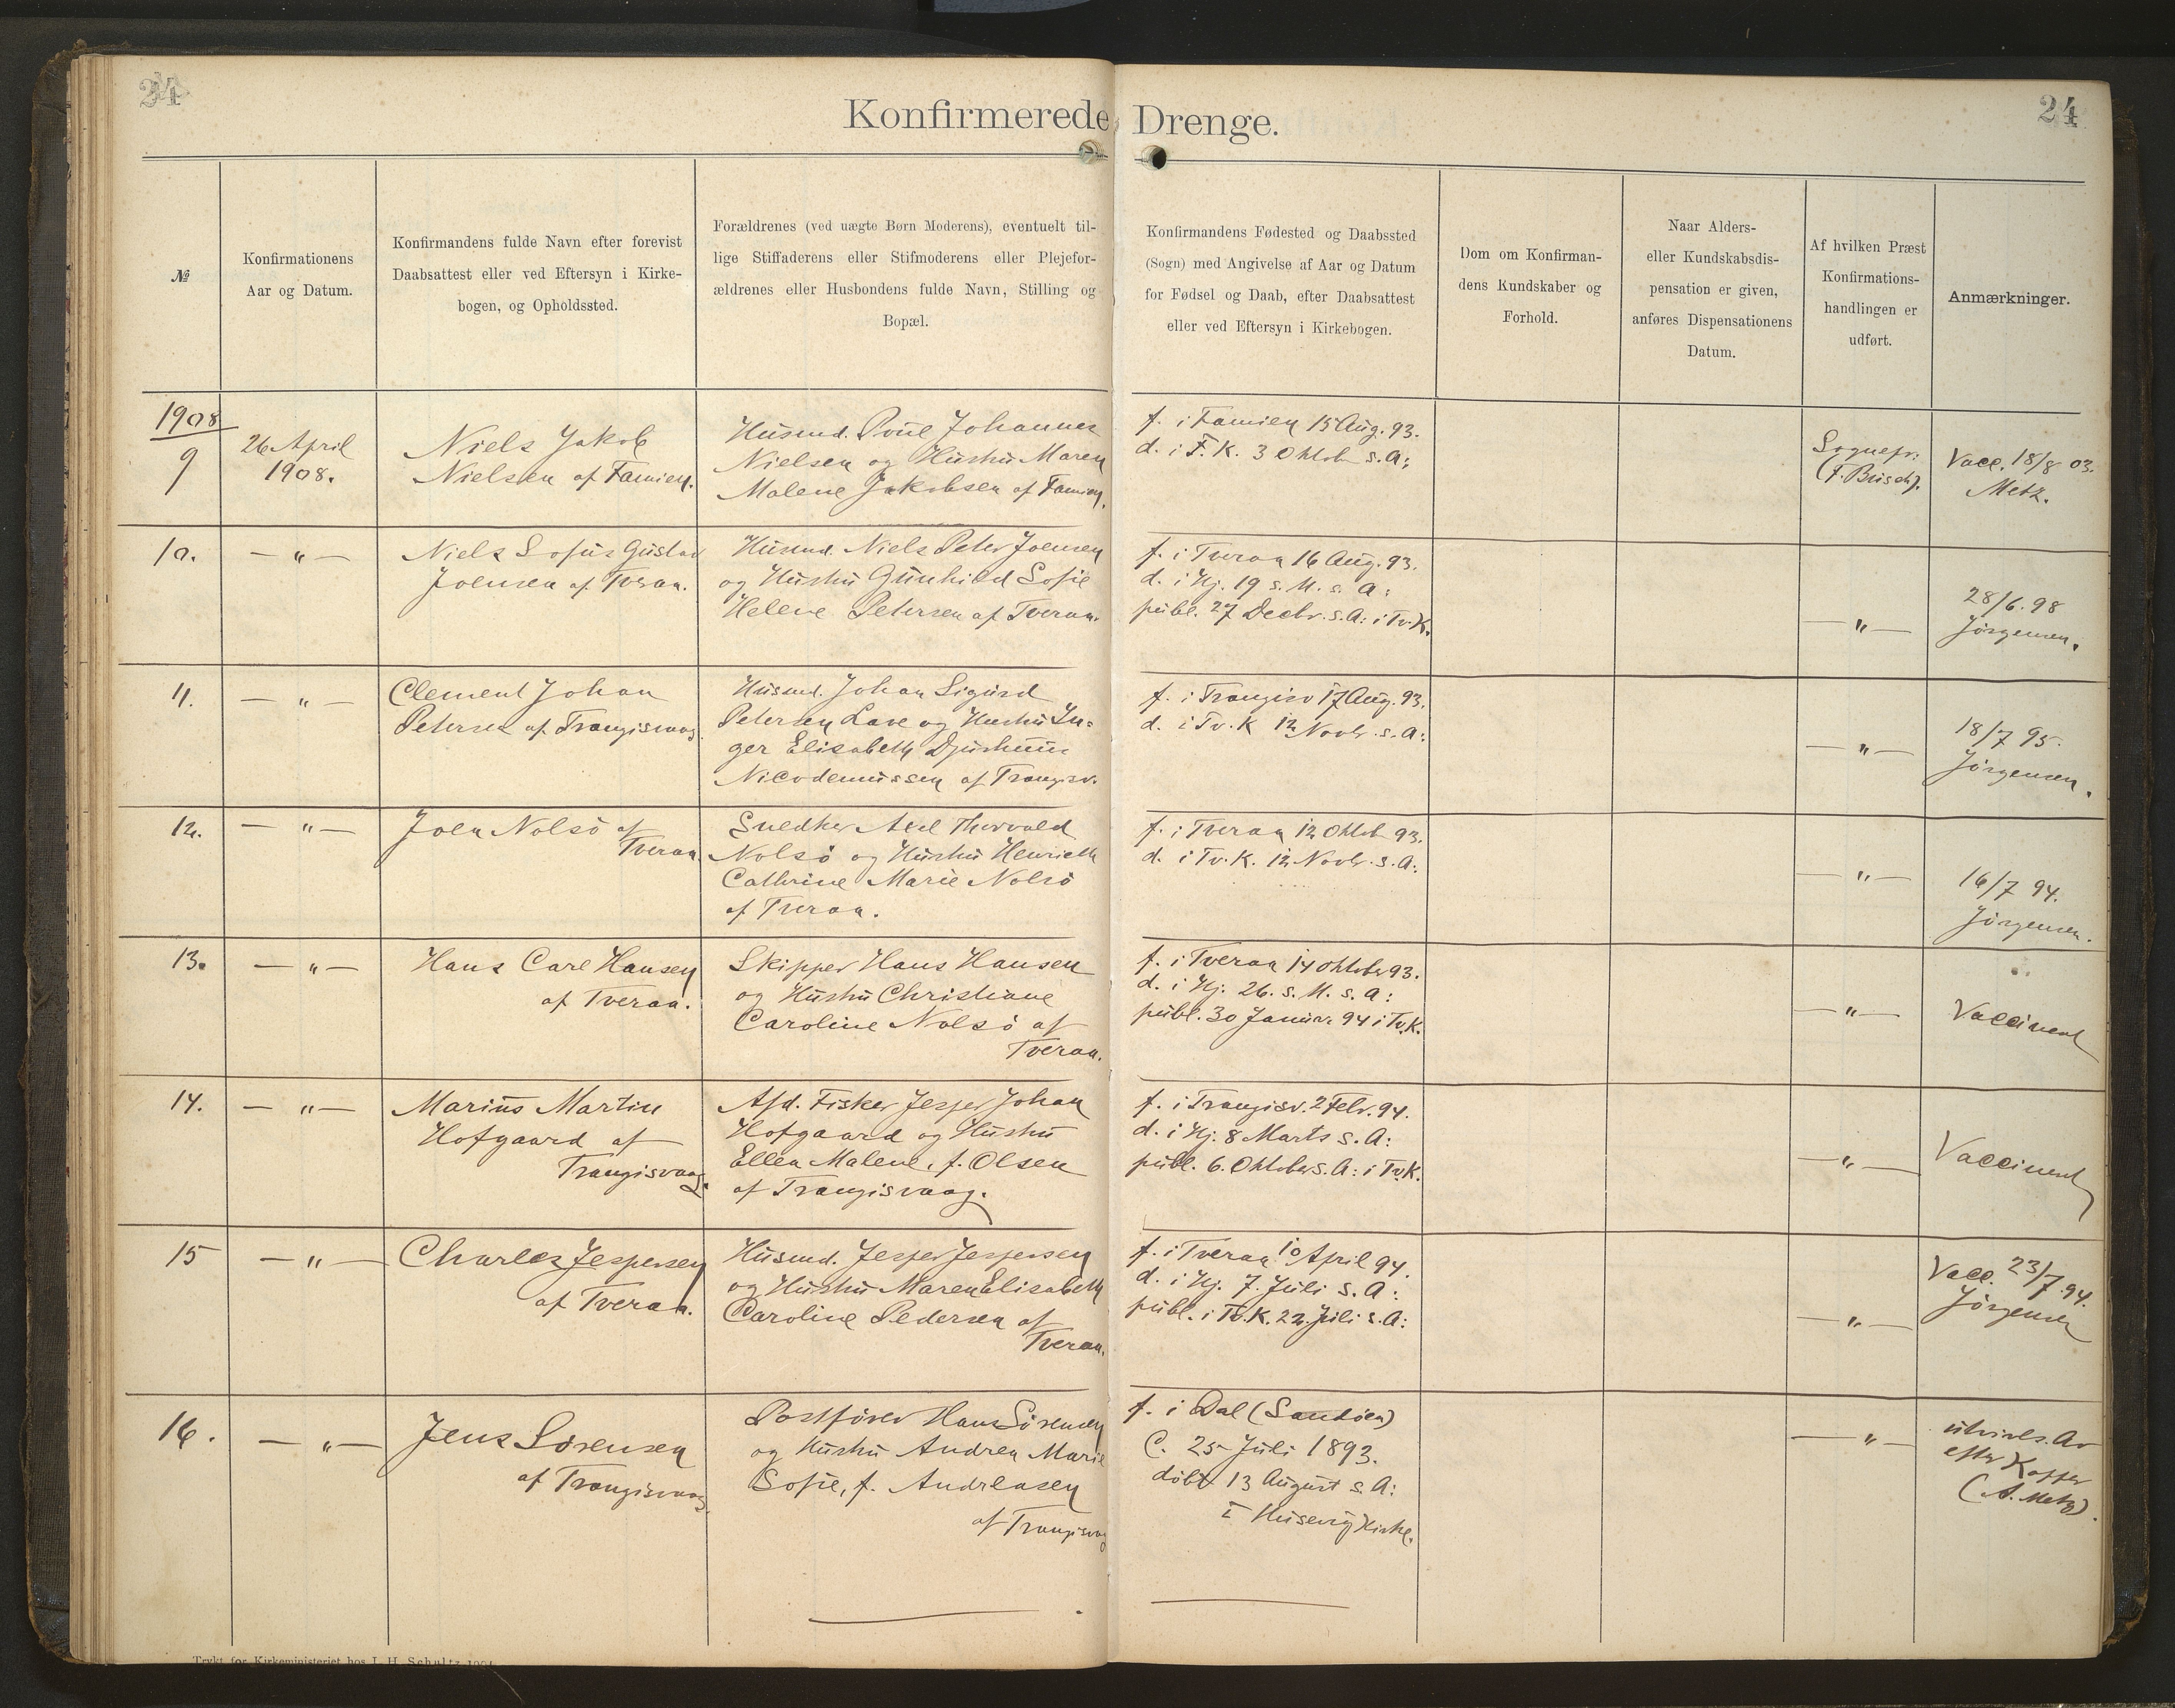 24
24
Konfirmerede Drenge.
№
Konfirmationens
Aar og Datum.
Konfirmandens fulde Navn efter forevist
Daabsattest eller ved Eftersyn i Kirke-
bogen, og Opholdssted.
Forældrenes (ved uægte Børn Moderens), eventuelt til-
lige Stiffaderens eller Stifmoderens eller Plejefor-
ældrenes eller Husbondens fulde Navn, Stilling og
Bopæl.
Konfirmandens Fødested og Daabssted
(Sogn) med Angivelse af Aar og Datum
for Fødsel og Daab, efter Daabsattest
eller ved Eftersyn i Kirkebogen.
Dom om Konfirman-
dens Kundskaber og
Forhold.
Naar Alders-
eller Kundskabsdis-
pensation er given,
anføres Dispensationens
Datum.
Af hvilken Præst
Konfirmations-
handlingen er
udført.
Anmærkninger.
1908
9
26 April
1908.
Niels Jakob
Nielsen af Famien.
Husmd. Poul Johannes
Nielsen og Hustru Maren
Malene Jakobsen af Famien.
f. i Famien 15 Aug. 93.
d. i F. K. 3 Oktob s. A:
Sognepr:
(F. Brisch).
Vacc. 18/8 03.
Metz.
10.
— „ —
Niels Sofus Gustav
Joensen af Tveraa.
Husmd. Niels Peter Joensen
og Hustru Gunhild Sofie
Helene Petersen af Tveraa.
f. i Tveraa 16 Aug. 93.
d. i Hj. 19 s. M. s. A:
publ. 27 Decbr. s. A: i Tv. K.
— „ —
28/6. 98
Jörgensen.
11.
— „ —
Clement Johan
Petersen af Trangisvaag.
Husmd. Johan Sigurd
Petersen Lave og Hustru In-
ger Elisabeth Djurhuus
Nicodemussen af Trangisv.
f. i Trangisv 17 Aug. 93.
d. i Tv. K 12 Novbr. s. A:
— „ —
18/7 95.
Jörgensen.
12.
— „ —
Joen Nolsö af
Tveraa.
Snedker Axel Thorvald
Nolsö og Hustru Henriette
Cathrine Marie Nolsö
af Tveraa.
f. i Tveraa 12 Oktob 93.
d. i Tv. K. 12 Novbr. s. A:
— „ —
16/7 94.
Jörgensen.
13.
— „ —
Hans Carl Hansen
af Tveraa.
Skipper Hans Hansen
og Hustru Christiane
Caroline Nolsö af
Tveraa.
f. i Tveraa 14 Oktober 93.
d. i Hj. 26. s. M. s. A:
publ. 30 Januar 94 i Tv. K.
— „ —
Vaccineret
14.
— „ —
Marius Martin
Hofgaard af
Trangisvaag.
Afd. Fisker Jesper Johan
Hofgaard og Hustru
Ellen Malene, f. Olsen
af Trangisvaag.
f. i Trangisv. 2 Febr. 94.
d. i Hj. 8 Marts s. A:
publ. 6. Oktober s. A: i Tv. K.
— „ —
Vaccineret
15
— „ —
Charles Jespersen
af Tveraa.
Husmd. Jesper Jespersen
og Hustru Maren Elisabeth
Caroline Pedersen af
Tveraa.
f. i Tveraa 10 April 94.
d. i Hj. 7. Juli s. A:
publ. i Tv. K. 22. Juli s. A:
— „ —
Vacc. 23/7. 94.
Jörgensen
16.
— „ —
Jens Sörensen
af Trangisvaag.
Postförer Hans Sörensen
og Hustru Andrea Marie
Sofie, f. Andreasen
af Trangisvaag
f. i Dal (Sandöen)
25 Juli 1893.
döbt 13 August s. A:
I Husevig Kirke.
— „ —
utvivls. Ar
efter Kopper
(A. Metz).
Trykt for Kirkeministeriet hos J. H. Schultz 1904